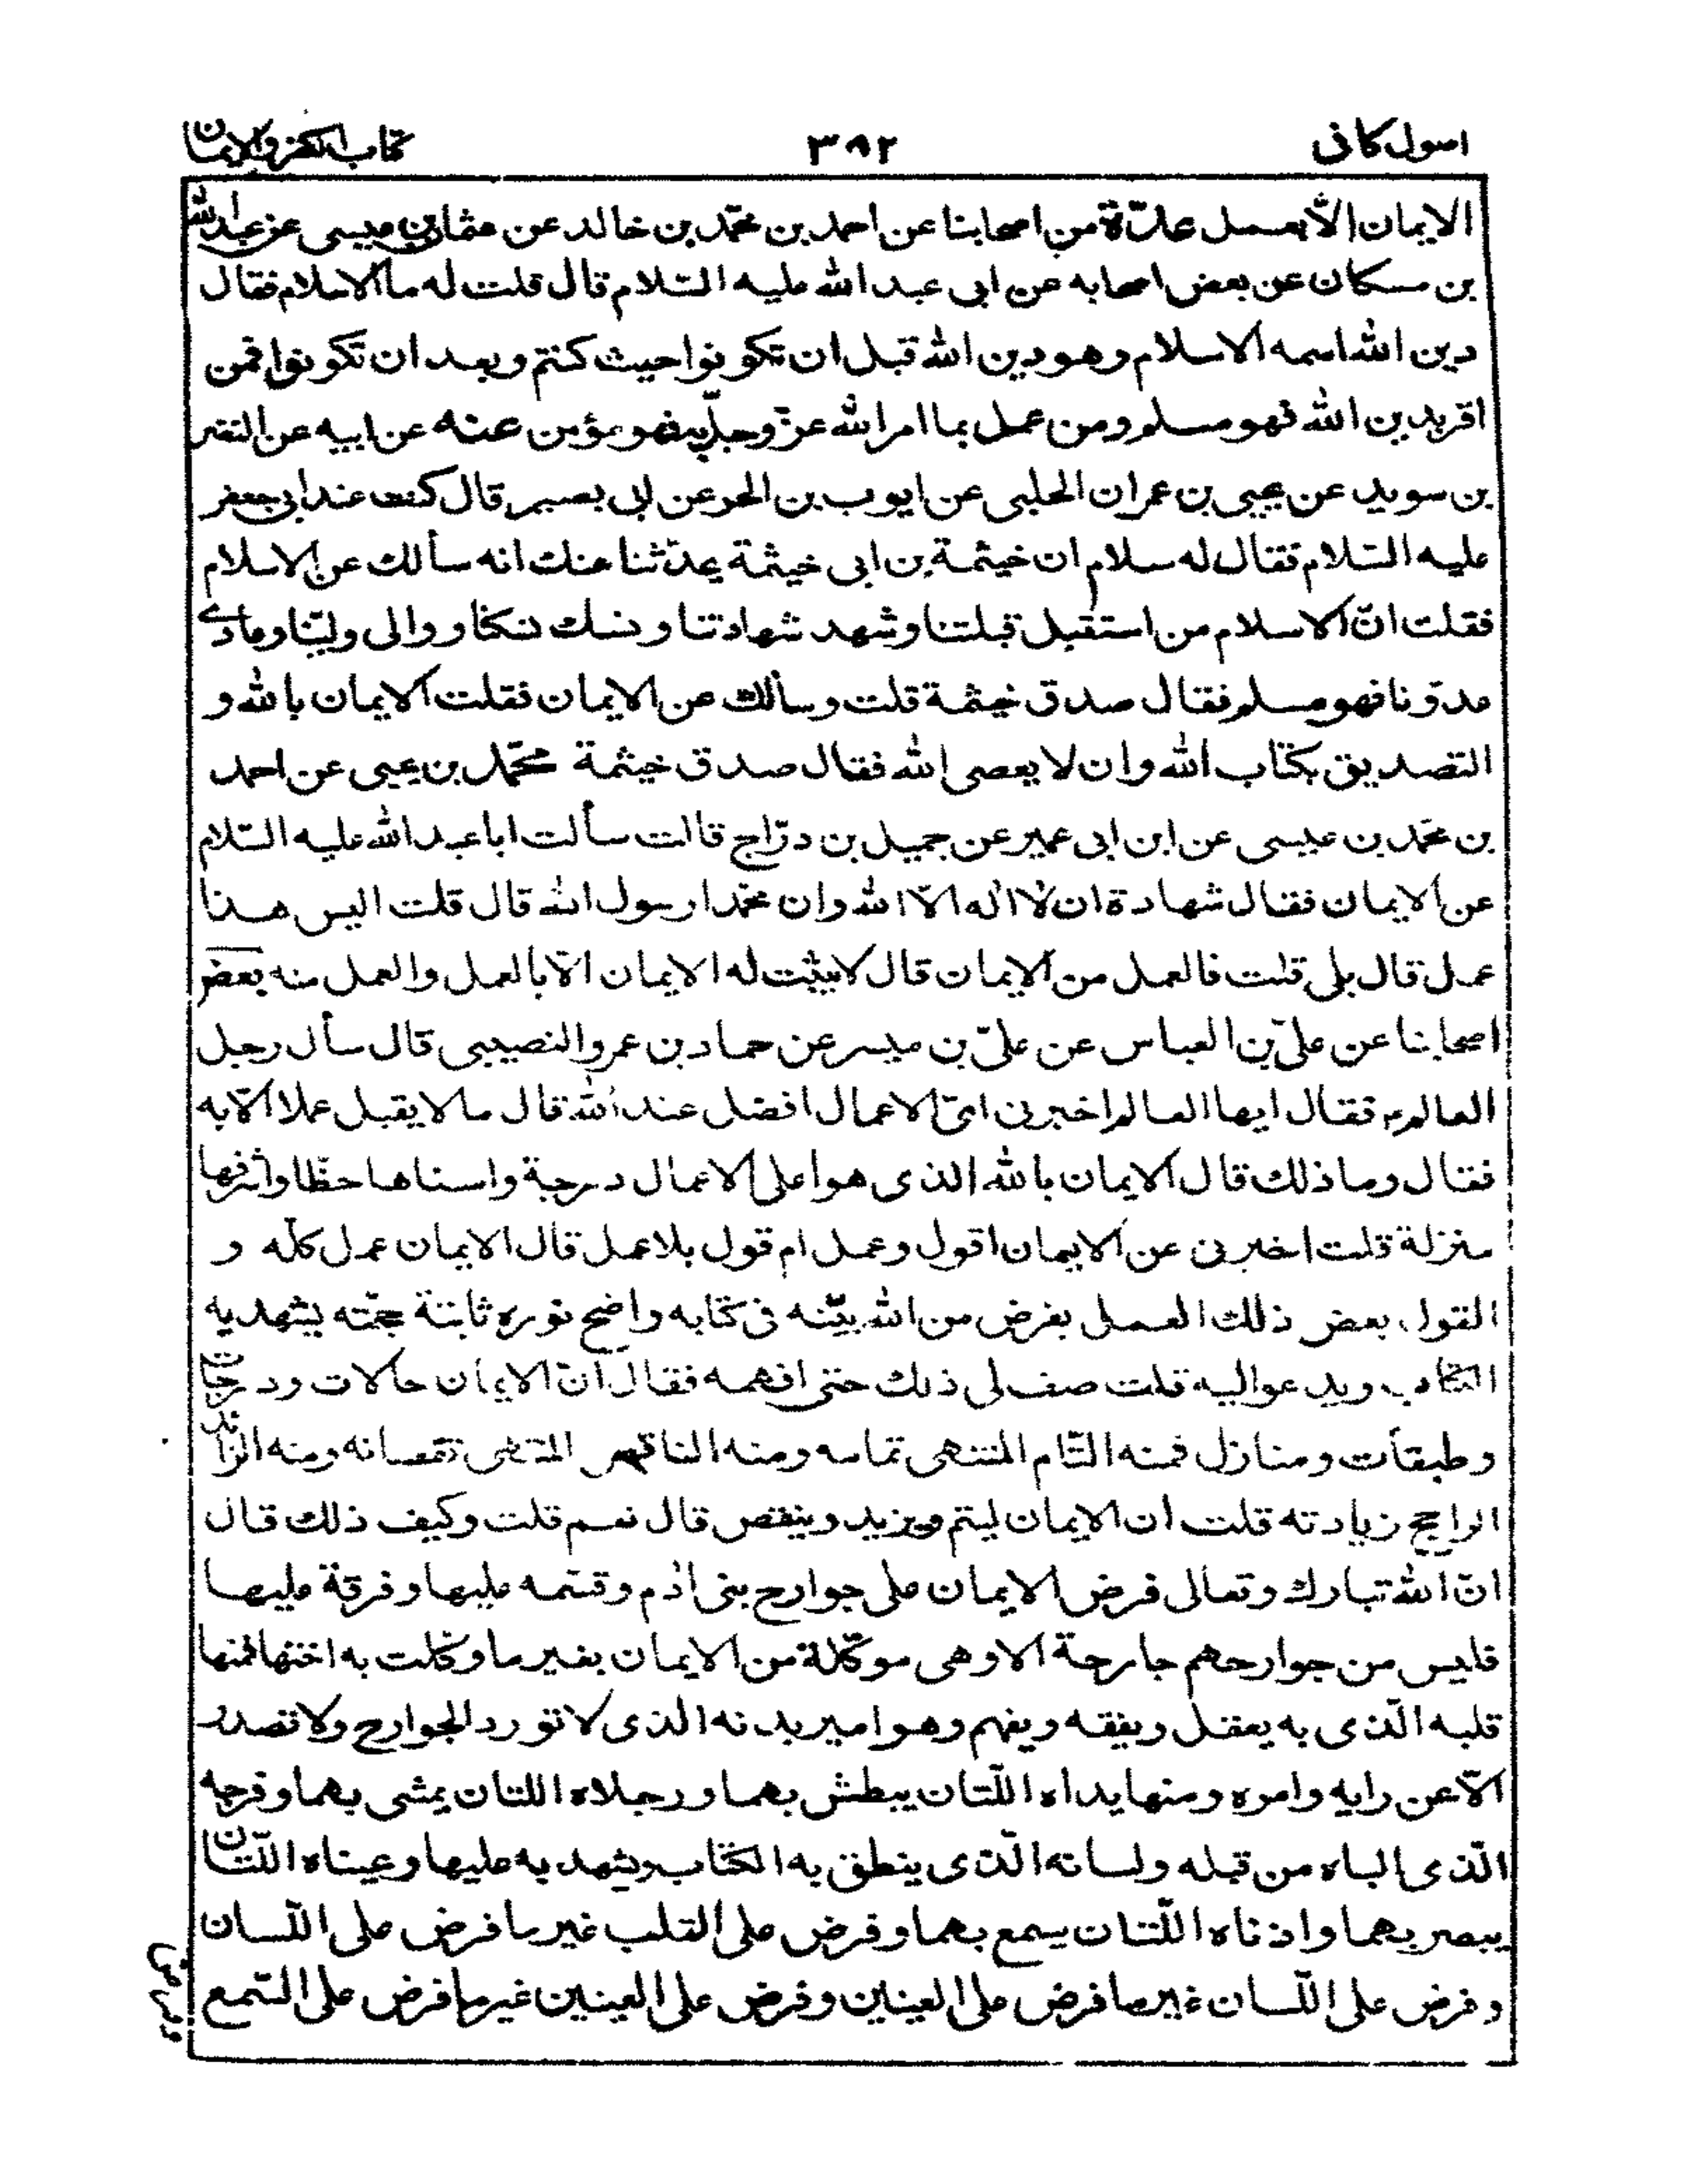 اصول كافى
٣٨٢
كتاب الكفر والايمان
الايمان الّا بعمل عدّة من اصحابنا عن احمد بن محّمد بن خالد عن عثمان بن عيسى عن عبد الله
بن مسكان عن بعض اصحابه عن ابى عبد الله عليه السّلام قال قلت له ما الاسلام فقال
دين الله اسمه الاسلام وهو دين الله قبل ان تكونوا حيث كنتم وبعد ان تكونوا فمن
اقر بدين الله فهو مسلم ومن عمل بما امر الله عزّ وجلّ به فهو مؤمن عنه عن ابيه عن النضر
بن سويد عن يحيى بن عمران الحلبى عن ايوب بن الحر عن ابى بصير قال كنت عند ابى جعفر
عليه السّلام فقال له سلام ان خيثمة بن ابى خيثمة يحدّثنا عنك انه سألك عن الاسلام
فقلت انّ الاسلام من استقبل قبلتنا وشهد شهادتنا ونسك نسكنا ووالى وليّنا وعادى
عدوّنا فهو مسلم فقال صدق خيثمة قلت وسألك عن الايمان فقلت الايمان بالله و
التصديق بكتاب الله وان لا يعصى الله فقال صدق خيثمة محّمد بن يحيى عن احمد
بن محّمد بن عيسى عن ابن ابى عمير عن جميل بن درّاج قالت سألت ابا عبد الله عليه السّلام
عن الايمان فقال شهادة ان لا اله الّا الله وان محّمدا رسول الله قال قلت اليس هذا
عمل قال بلى قلت فالعمل من الايمان قال لا يثبت له الايمان الّا بالعمل والعمل منه بعض
اصحابنا عن علىّ بن العباس عن علىّ بن ميسر عن حماد بن عمرو النصيبى قال سأل رجل
العالم ع فقال ايها العالم اخبرنى اىّ الاعمال افضل عند الله قال ما لا يقبل عملا الّا به
فقال وما ذلك قال الايمان بالله الذى هو اعلى الاعمال درجة واسناها حظّا واشرفها
منزلة قلت اخبرنى عن الايمان اقول وعمل ام قول بلا عمل قال الايمان عمل كلّه و
القول بعض ذلك العمل بفرض من الله بيّنه فى كتابه واضح نوره ثابتة حجّته يشهد به
الكتاب ويدعو اليه قلت صف لى ذلك حتى افهمه فقال انّ الايمان حالات ودرجات
وطبقات ومنازل فمنه التّام المنتهى تمامه ومنه الناقص المنتهى نقصانه ومنه الزائد
الراجح زيادته قلت ان الايمان ليتم ويزيد وينقص قال نعم قلت وكيف ذلك قال
انّ الله تبارك وتعالى فرض الايمان على جوارح بنى ادم وقسّمه عليها وفرقة عليها
فليس من جوارحهم جارحة الا وهى موكّلة من الايمان بغير ما وكّلت به اختها فمنها
قلبه الّذى به يعقل ويفقه ويفهم وهو امير بدنه الذى لا تورد الجوارح ولا تصدر
الّا عن رايه وامره ومنها يداه اللّتان يبطش بهما ورجلاه اللتان يمشى بهما وفرجه
الّذى الباه من قبله ولسانه الّذى ينطق به الكتاب ويشهد به عليها وعيناه اللّتان
يبصر بهما واذناه اللّتان يسمع بهما وفرض على القلب غير ما فرض على اللّسان
وفرض على اللّسان غير ما فرض على العينين وفرض على العينين غير ما فرض على السّمع
وفرض